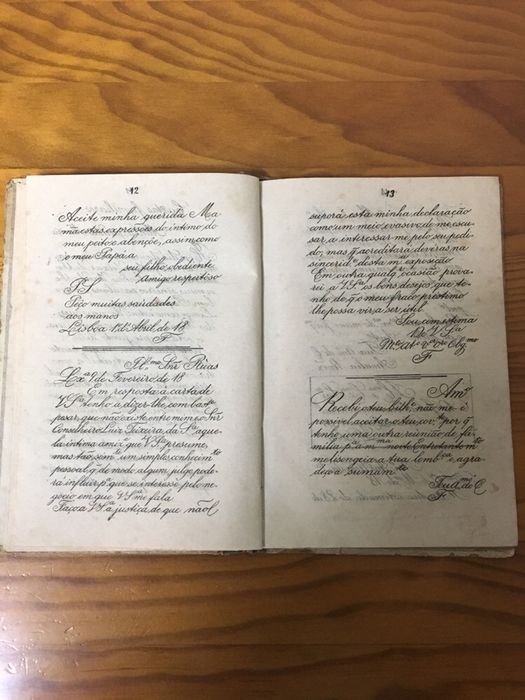 12
Aceite minha querida Ma
mã estas expressões do intimo do
meu peito e abençoe, assim como
o meu Papá a
seu filho obediente
e amigo respeitoso
P.S.
Peço muitas saudades
aos manos
Lisboa 1 de Abril de 18
F
Illᵐᵒ Snr Ruas
Lxª 9 de Fevereiro de 18
Em resposta á carta de
V.Sª tenho a dizer-lhe com bastᵉ
pesar, que não existe entre mim e o Snr
Conselheiro Luiz Teixeira, da Sª aquel
la intima amizᵉ que V.Sª presume,
mas tão sómᵗᵉ um simples conhecimᵗᵒ
pessoal q̃ de modo algum julgo pode
ra influir pª que se interesse pelo ne
gocio em que V.Sª me falla
Faça a V.Sª a justiça de que não
13
suporá esta minha declaração
como um meio evasivo de me escu
sar a interessar-me pelo seu pedi
do, mas q̃ acreditará deveras na
sinceridᵉ desta mª exposição
Em outra qualqʳ ocasião prova
rei a V.Sª os bons desejos que te
nho de q̃ o meu fraco prestimo
lhe possa vir a ser util
Sou com estima
De V.Sª
Mᵗᵒ Attᵒ Vᵒʳ Obgᵐᵒ
F
Amᵒ
Recebi o teu bilhᵉ, não me é
possivel aceitar o teu convᵗᵉ por q̃
tenho uma outra reunião de fa
milia pª amᵃ á noute Entretantᵒ
me lisongeio a tua lembᶜª e agra
deço a summamᵗᵉ
Teu amᵒ do C.
F.